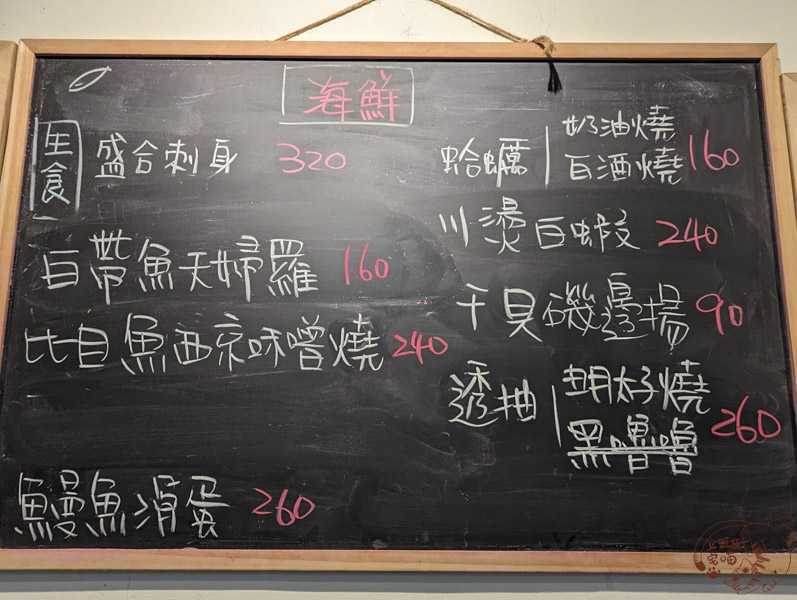 海鮮
生食
盛合刺身 320
白帶魚天婦羅 160
比目魚西京味噌燒 240
鰻魚滑蛋 260
蛤蠣 奶油燒 160
白酒燒
川燙白蝦 240
干貝磯邊揚 90
透抽 明太子燒 260
黑嚕嚕